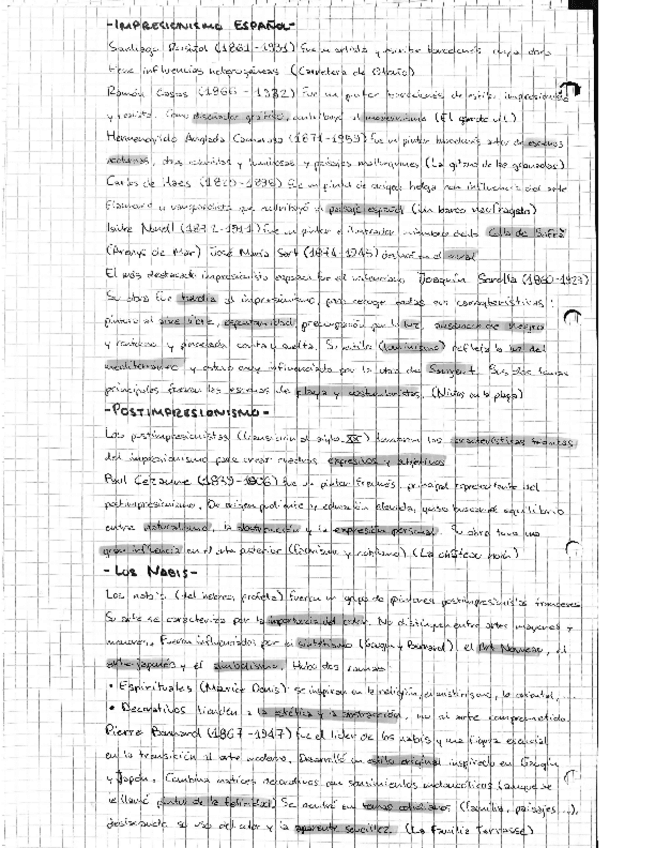 -IMPRESIONISMO ESPAÑOL-
Santiago Rusiñol (1861-1931) fue un artista y escritor barcelonés cuya obra
tiene influencias heterogéneas (Carretera de
Ramón Casas (1866-1932) fue un pintor barcelonés de estilo impresionista
y Como diseñador gráfico, contribuyó al modernismo (El garrote vil)
Hermenegildo Anglada Camarasa (1871-1959) fue un pintor barcelonés autor de escenas
obras coloridas y luminosas y paisajes mallorquines (La gitana de las granadas)
Carlos de Haes fue un pintor de origen belga con influencia del arte
flamenco y que contribuyó al paisaje español (Un barco naufragado)
Isidre Nonell fue un pintor e ilustrador miembro de la Colla de Safrà
(Arenys de Mar) José María Sert (1874-1945) destacó en el mural
El más destacado impresionista español fue el valenciano Joaquín Sorolla (1860-1923)
Su obra fue tardía al impresionismo, pero recoge todas sus características:
pintura al aire libre, espontaneidad, preocupación por la luz, ausencia de negro
y contorno y pincelada corta y suelta. Su estilo (luminismo) refleja la luz del
mediterráneo y estuvo muy influenciado por la obra de Sargent. Sus dos temas
principales fueron las escenas de playa y costumbristas. (Niños en la playa)
-POSTIMPRESIONISMO-
Los postimpresionistas (transición al siglo XX) tomaron las características técnicas
del impresionismo para crear cuadros expresivos y subjetivos
Paul Cézanne (1839-1906) fue un pintor francés, principal representante del
postimpresionismo. De origen pudiente y educación elevada, quiso buscar el equilibrio
entre naturalismo, la abstracción y la expresión personal. Su obra tuvo una
gran influencia en el arte posterior (fauvismo y cubismo) (La
-LOS NABIS-
Los nabis (del hebreo, profeta) fueron un grupo de pintores postimpresionistas franceses
Su arte se caracteriza por la importancia del color. No distinguen entre artes mayores y
menores. Fueron influenciados por el sintetismo (Gauguin y Bernard) el Art Nouveau, el
arte japonés y el simbolismo. Hubo dos ramas
• Espirituales (Maurice Denis): se inspiran en la religión, el misticismo, lo oriental, ...
• Decorativos: tienden a la estética y la abstracción, no al arte comprometido.
Pierre Bonnard (1867-1947) fue el líder de los nabis y una figura esencial
en la transición al arte moderno. Desarrolló un estilo original inspirado en Gauguin
y Japón. Combina matices decorativos con sentimientos melancólicos (aunque se
le llamó pintor de la felicidad) Se centró en temas cotidianos (familia, paisajes ...),
destacando su uso del color y la aparente sencillez. (La familia Terrasse)